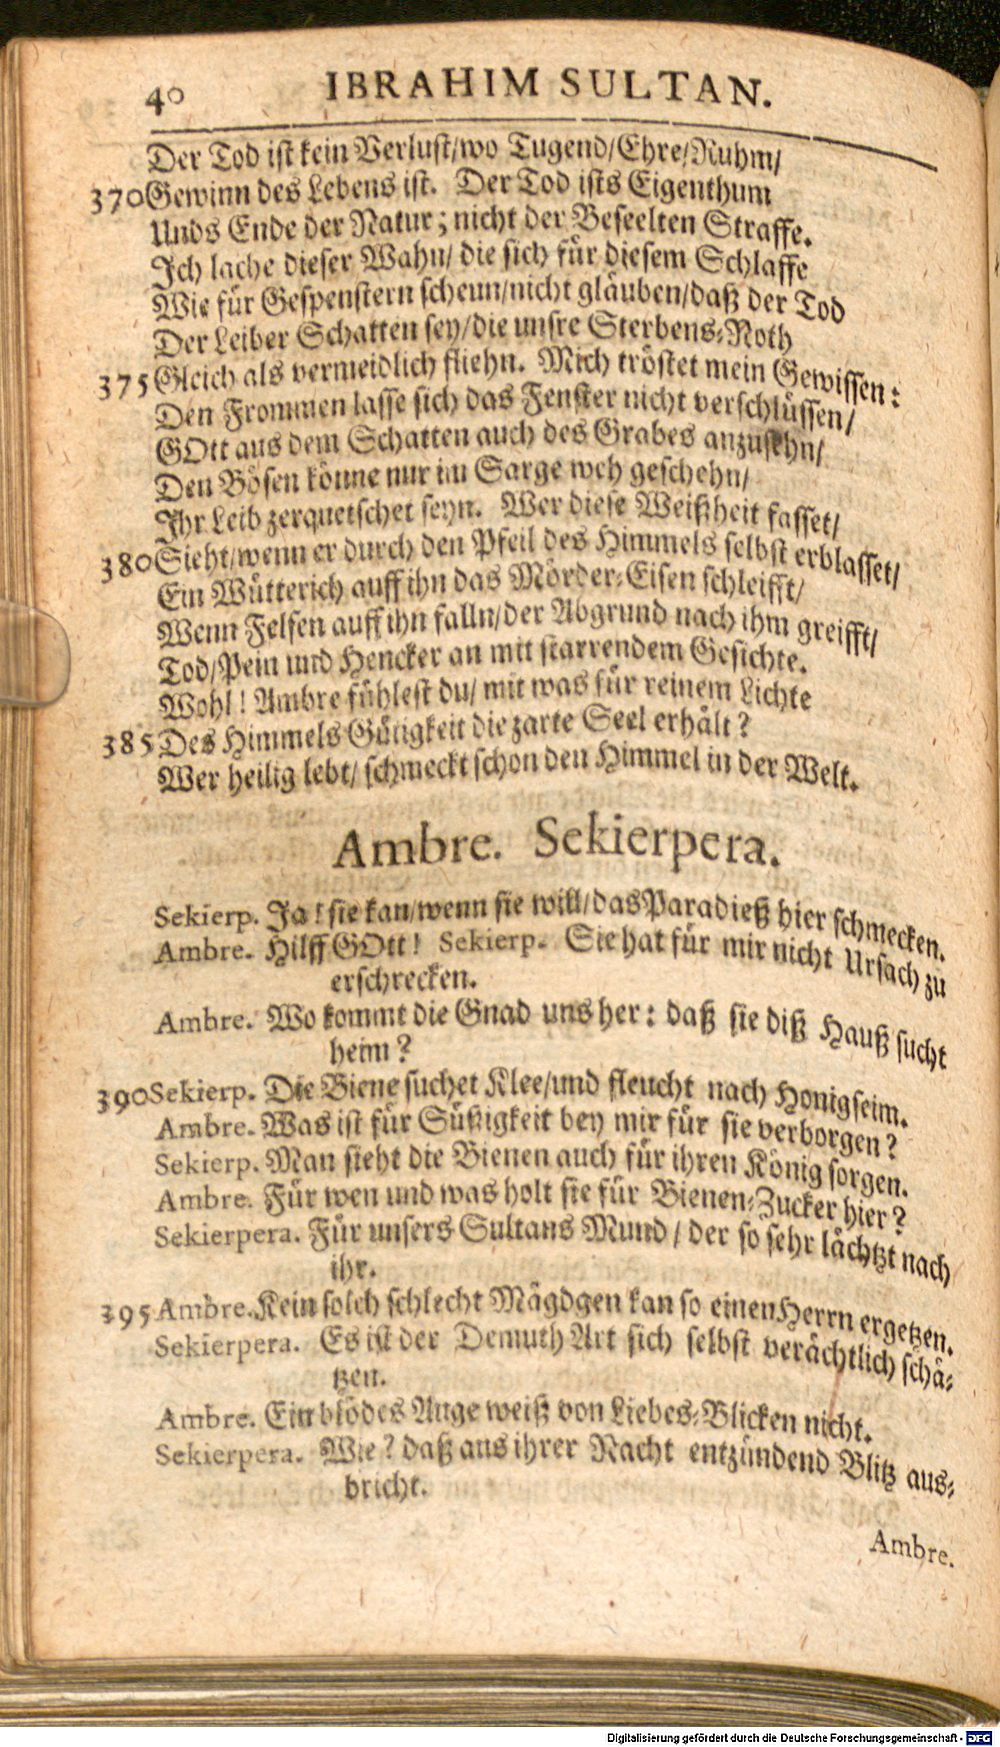 40 IBRAHIM SULTAN.
Der Tod ist kein Verlust/wo Tugend/Ehre/Ruhm/
370 Gewinn des Lebens ist. Der Tod ists Eigenthum
Unds Ende der Natur; nicht der Beseelten Straffe.
Ich lache dieser Wahn/ die sich für diesem Schlaffe
Wie für Gespenstern scheun/nicht gläuben/daß der Tod
Der Leiber Schatten sey/die unsre Sterbens-Noth
375 Gleich als vermeidlich fliehn. Mich tröstet mein Gewissen:
Den Frommen lasse sich das Fenster nicht verschlüssen/
GOtt aus dem Schatten auch des Grabes anzusehn/
Den Bösen könne nur im Sarge weh geschehn/
Ihr Leib zerquetschet seyn. Wer diese Weißheit fasset/
380 Sieht/wenn er durch den Pfeil des Himmels selbst erblasset/
Ein Wütterich auff ihn das Mörder-Eisen schleifft/
Wenn Felsen auff ihn falln/der Abgrund nach ihm greifft/
Tod/Pein und Hencker an mit starrendem Gesichte.
Wohl! Ambre fühlest du/ mit was für reinem Lichte
385 Des Himmels Gütigkeit die zarte Seel erhält?
Wer heilig lebt/ schmeckt schon den Himmel in der Welt.
Ambre. Sekierpera.
Sekierp. Ja! sie kan/wenn sie will/das Paradieß hier schmecken.
Ambre. Hilff GOtt! Sekierp. Sie hat für mir nicht Ursach zu
erschrecken.
Ambre. Wo kommt die Gnad uns her: daß sie diß Hauß sucht
heim?
390 Sekierp. Die Biene suchet Klee/und fleucht nach Honigseim.
Ambre. Was ist für Süßigkeit bey mir für sie verborgen?
Sekierp. Man sieht die Bienen auch für ihren König sorgen.
Ambre. Für wen und was holt sie für Bienen-Zucker hier?
Sekierpera. Für unsers Sultans Mund/ der so sehr lächtzt nach
ihr.
395 Ambre. Kein solch schlecht Mägdgen kan so einen Herrn ergetzen.
Sekierpera. Es ist der Demuth Art sich selbst verächtlich schä-
tzen.
Ambre. Ein blödes Auge weiß von Liebes-Blicken nicht.
Sekierpera. Wie? daß aus ihrer Nacht entzündend Blitz aus-
bricht.
Ambre.
Digitalisierung gefördert durch die Deutsche Forschungsgemeinschaft - DFG